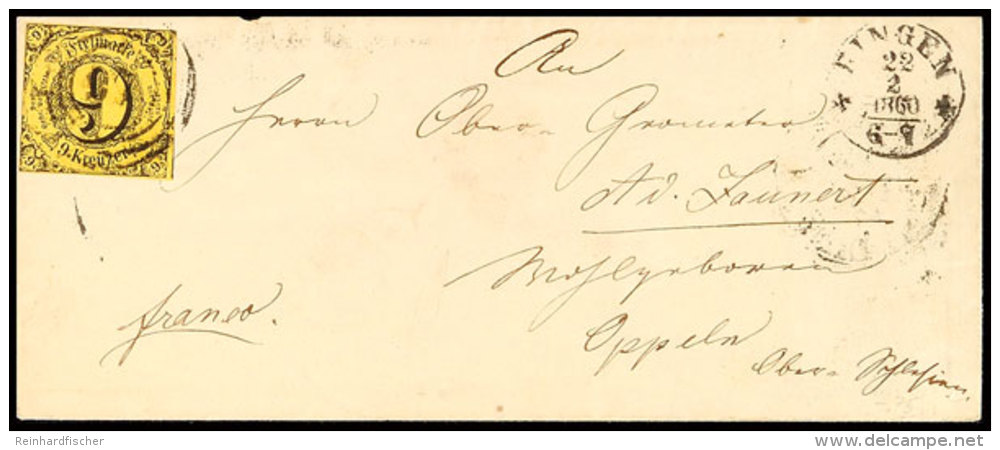 Freimarke
9
9. Kreuzer.
BINGEN
22
2
1860
6-9
An
Herrn Ober-Geometer
Ad. Faunert
Wohlgeboren
franco.
Oppeln
Ober-Schlesien.
Reinhardfischer
delcampe.net